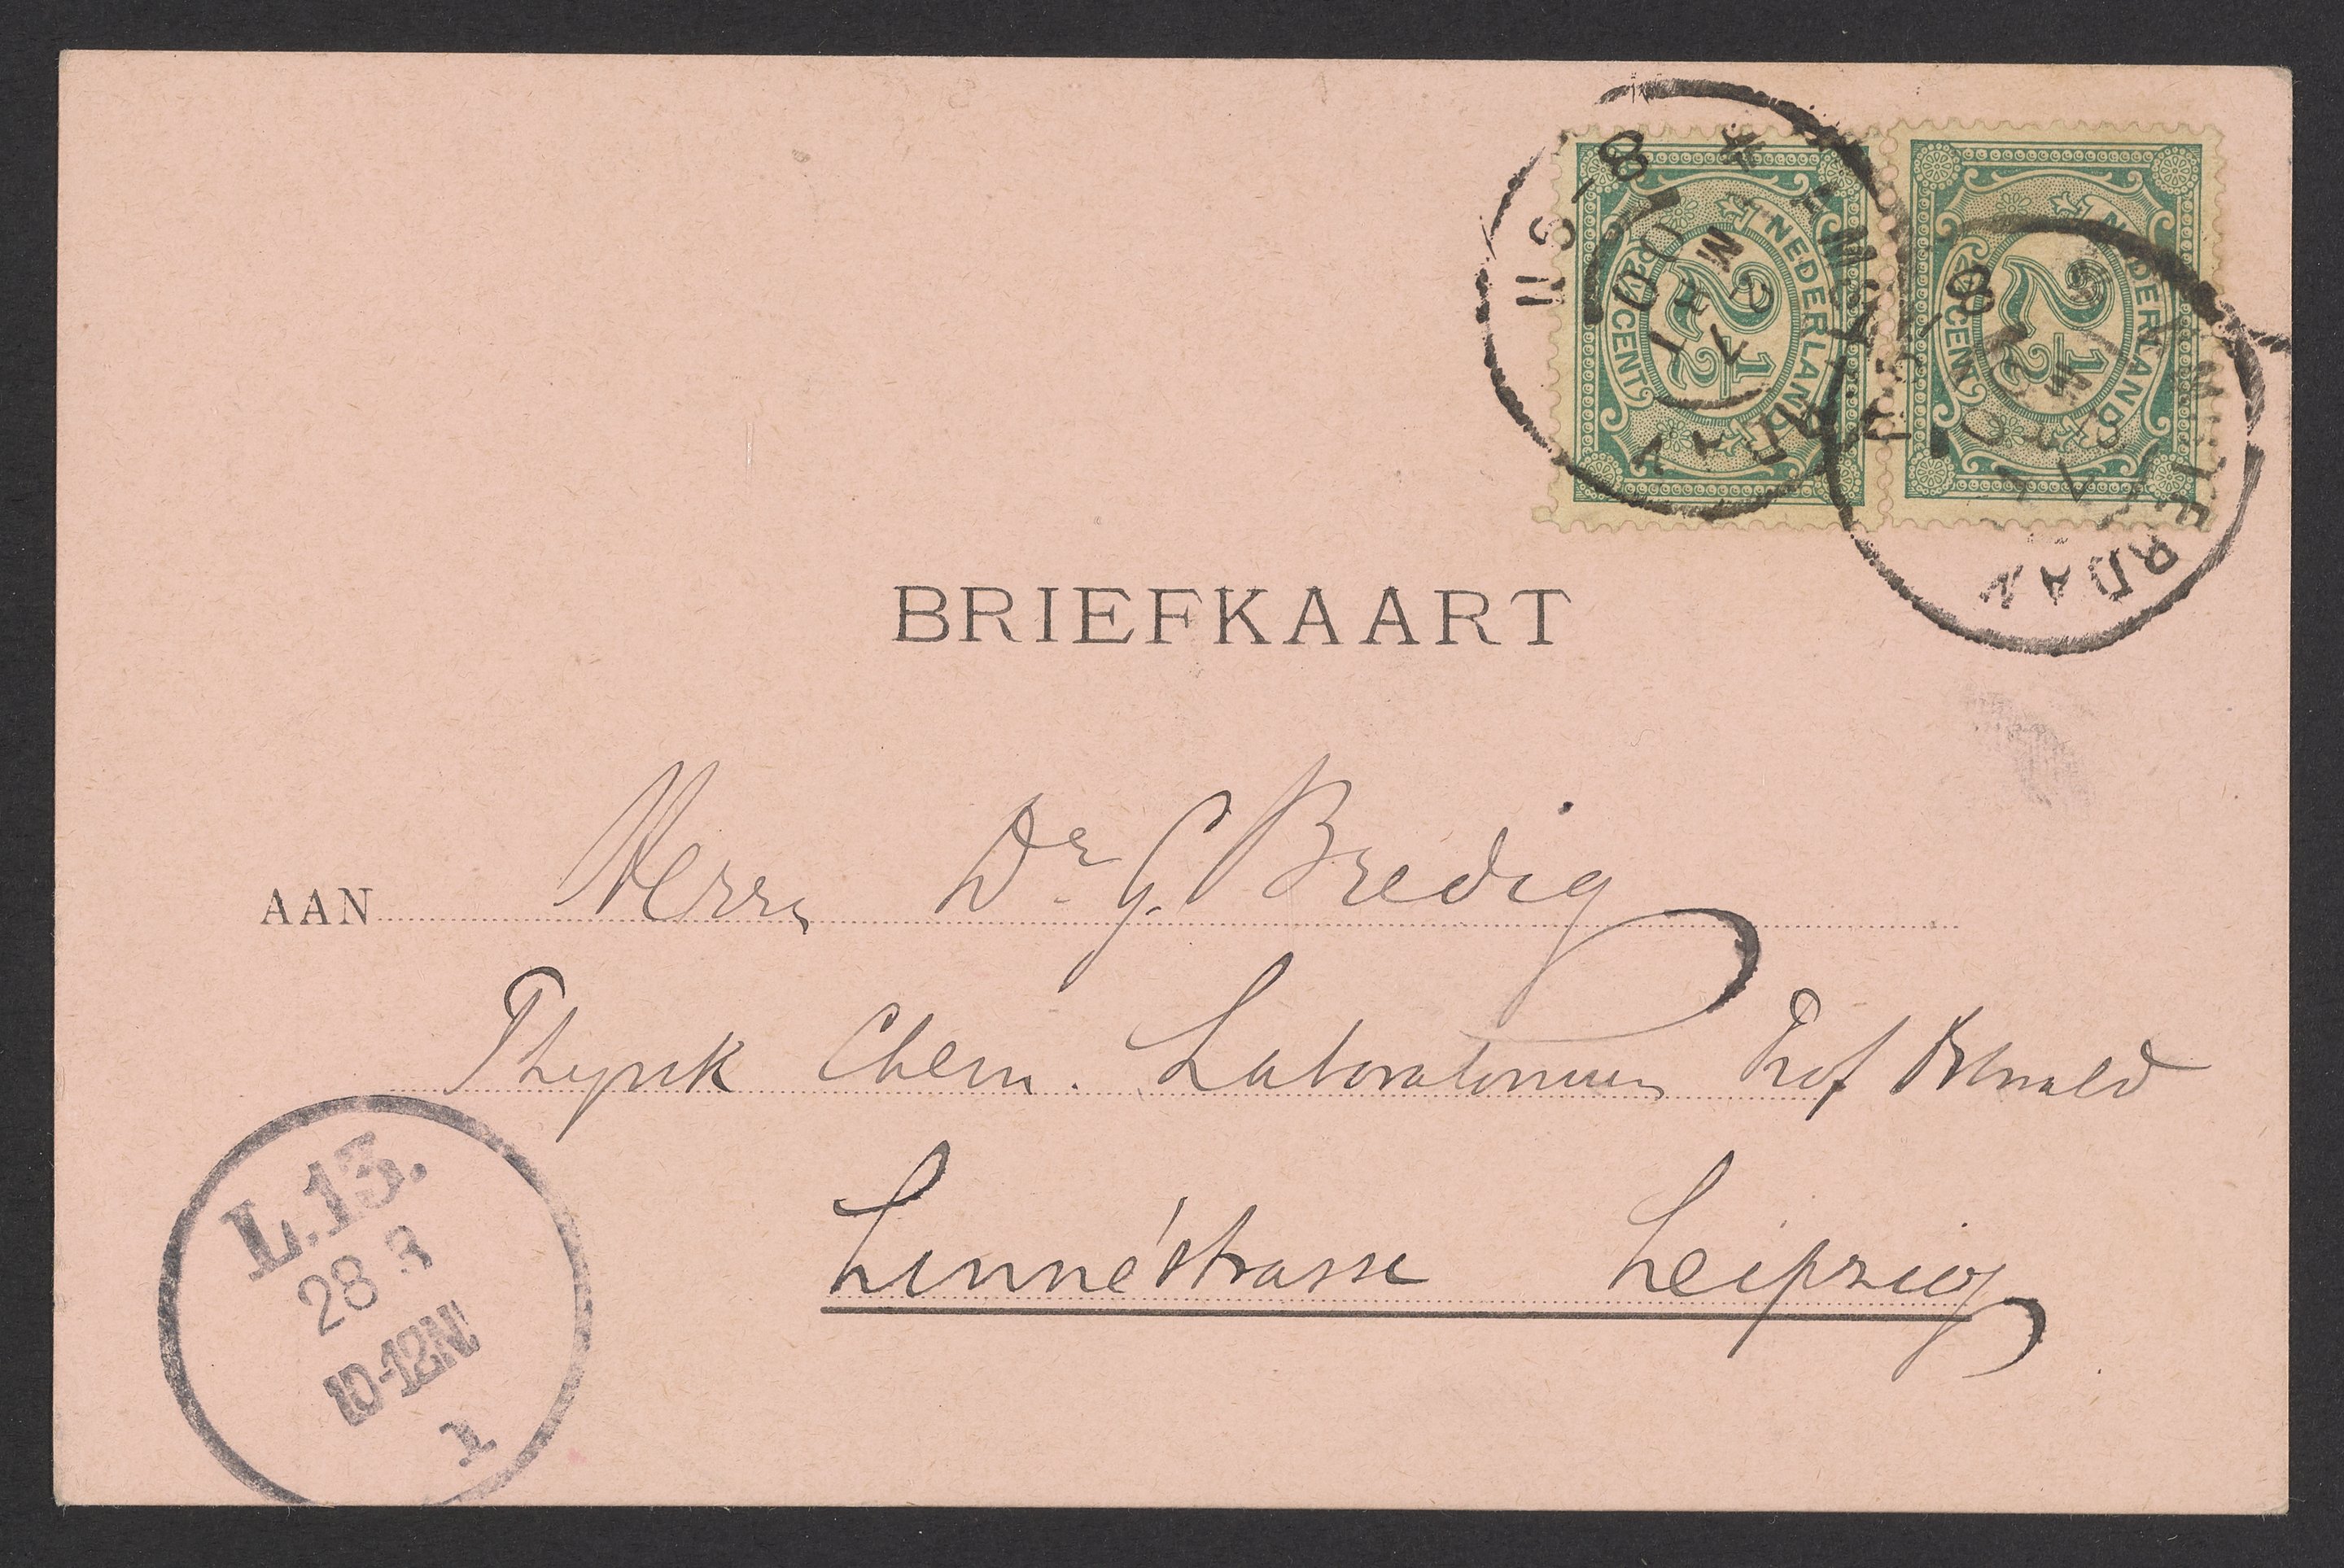 NEDERLAND
2½
2½ CENT
NEDERLAND
2½
2½ CENT
AMSTERDAM
8-9 N
27 MRT
AMSTERDAM
8-9
27 MRT
BRIEFKAART
AAN Herrn Dr. G. Bredig
Physik Chem. Laboratorium Prof Ostwald
Linnéstrasse Leipzig
L.13.
28 3
10-12N
1